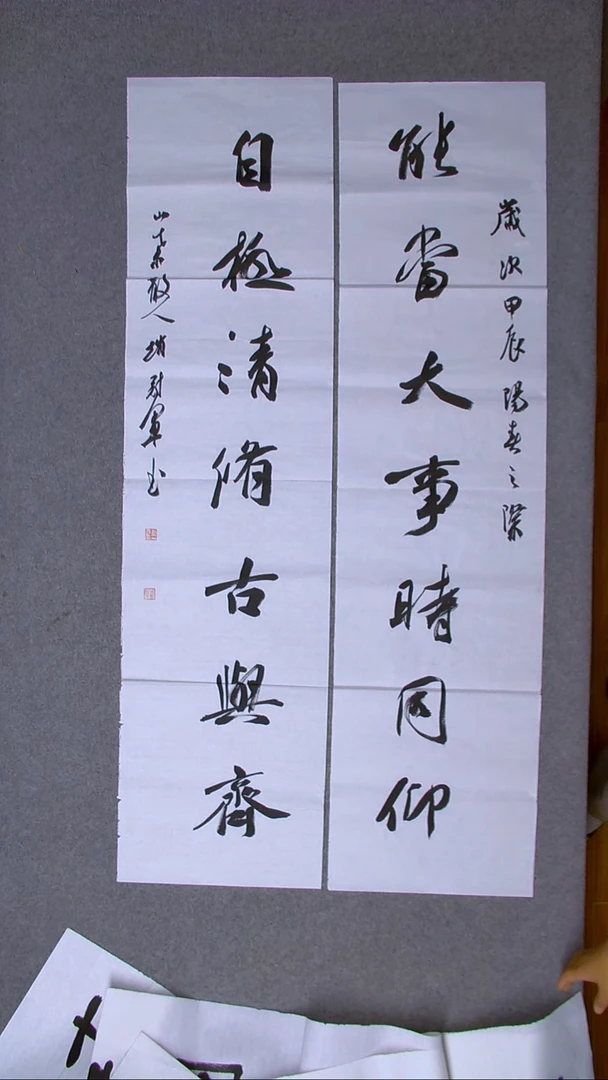 歲次甲辰陽春之際
能當大事時同仰
自極清脩古與齊
山東散人 軍書